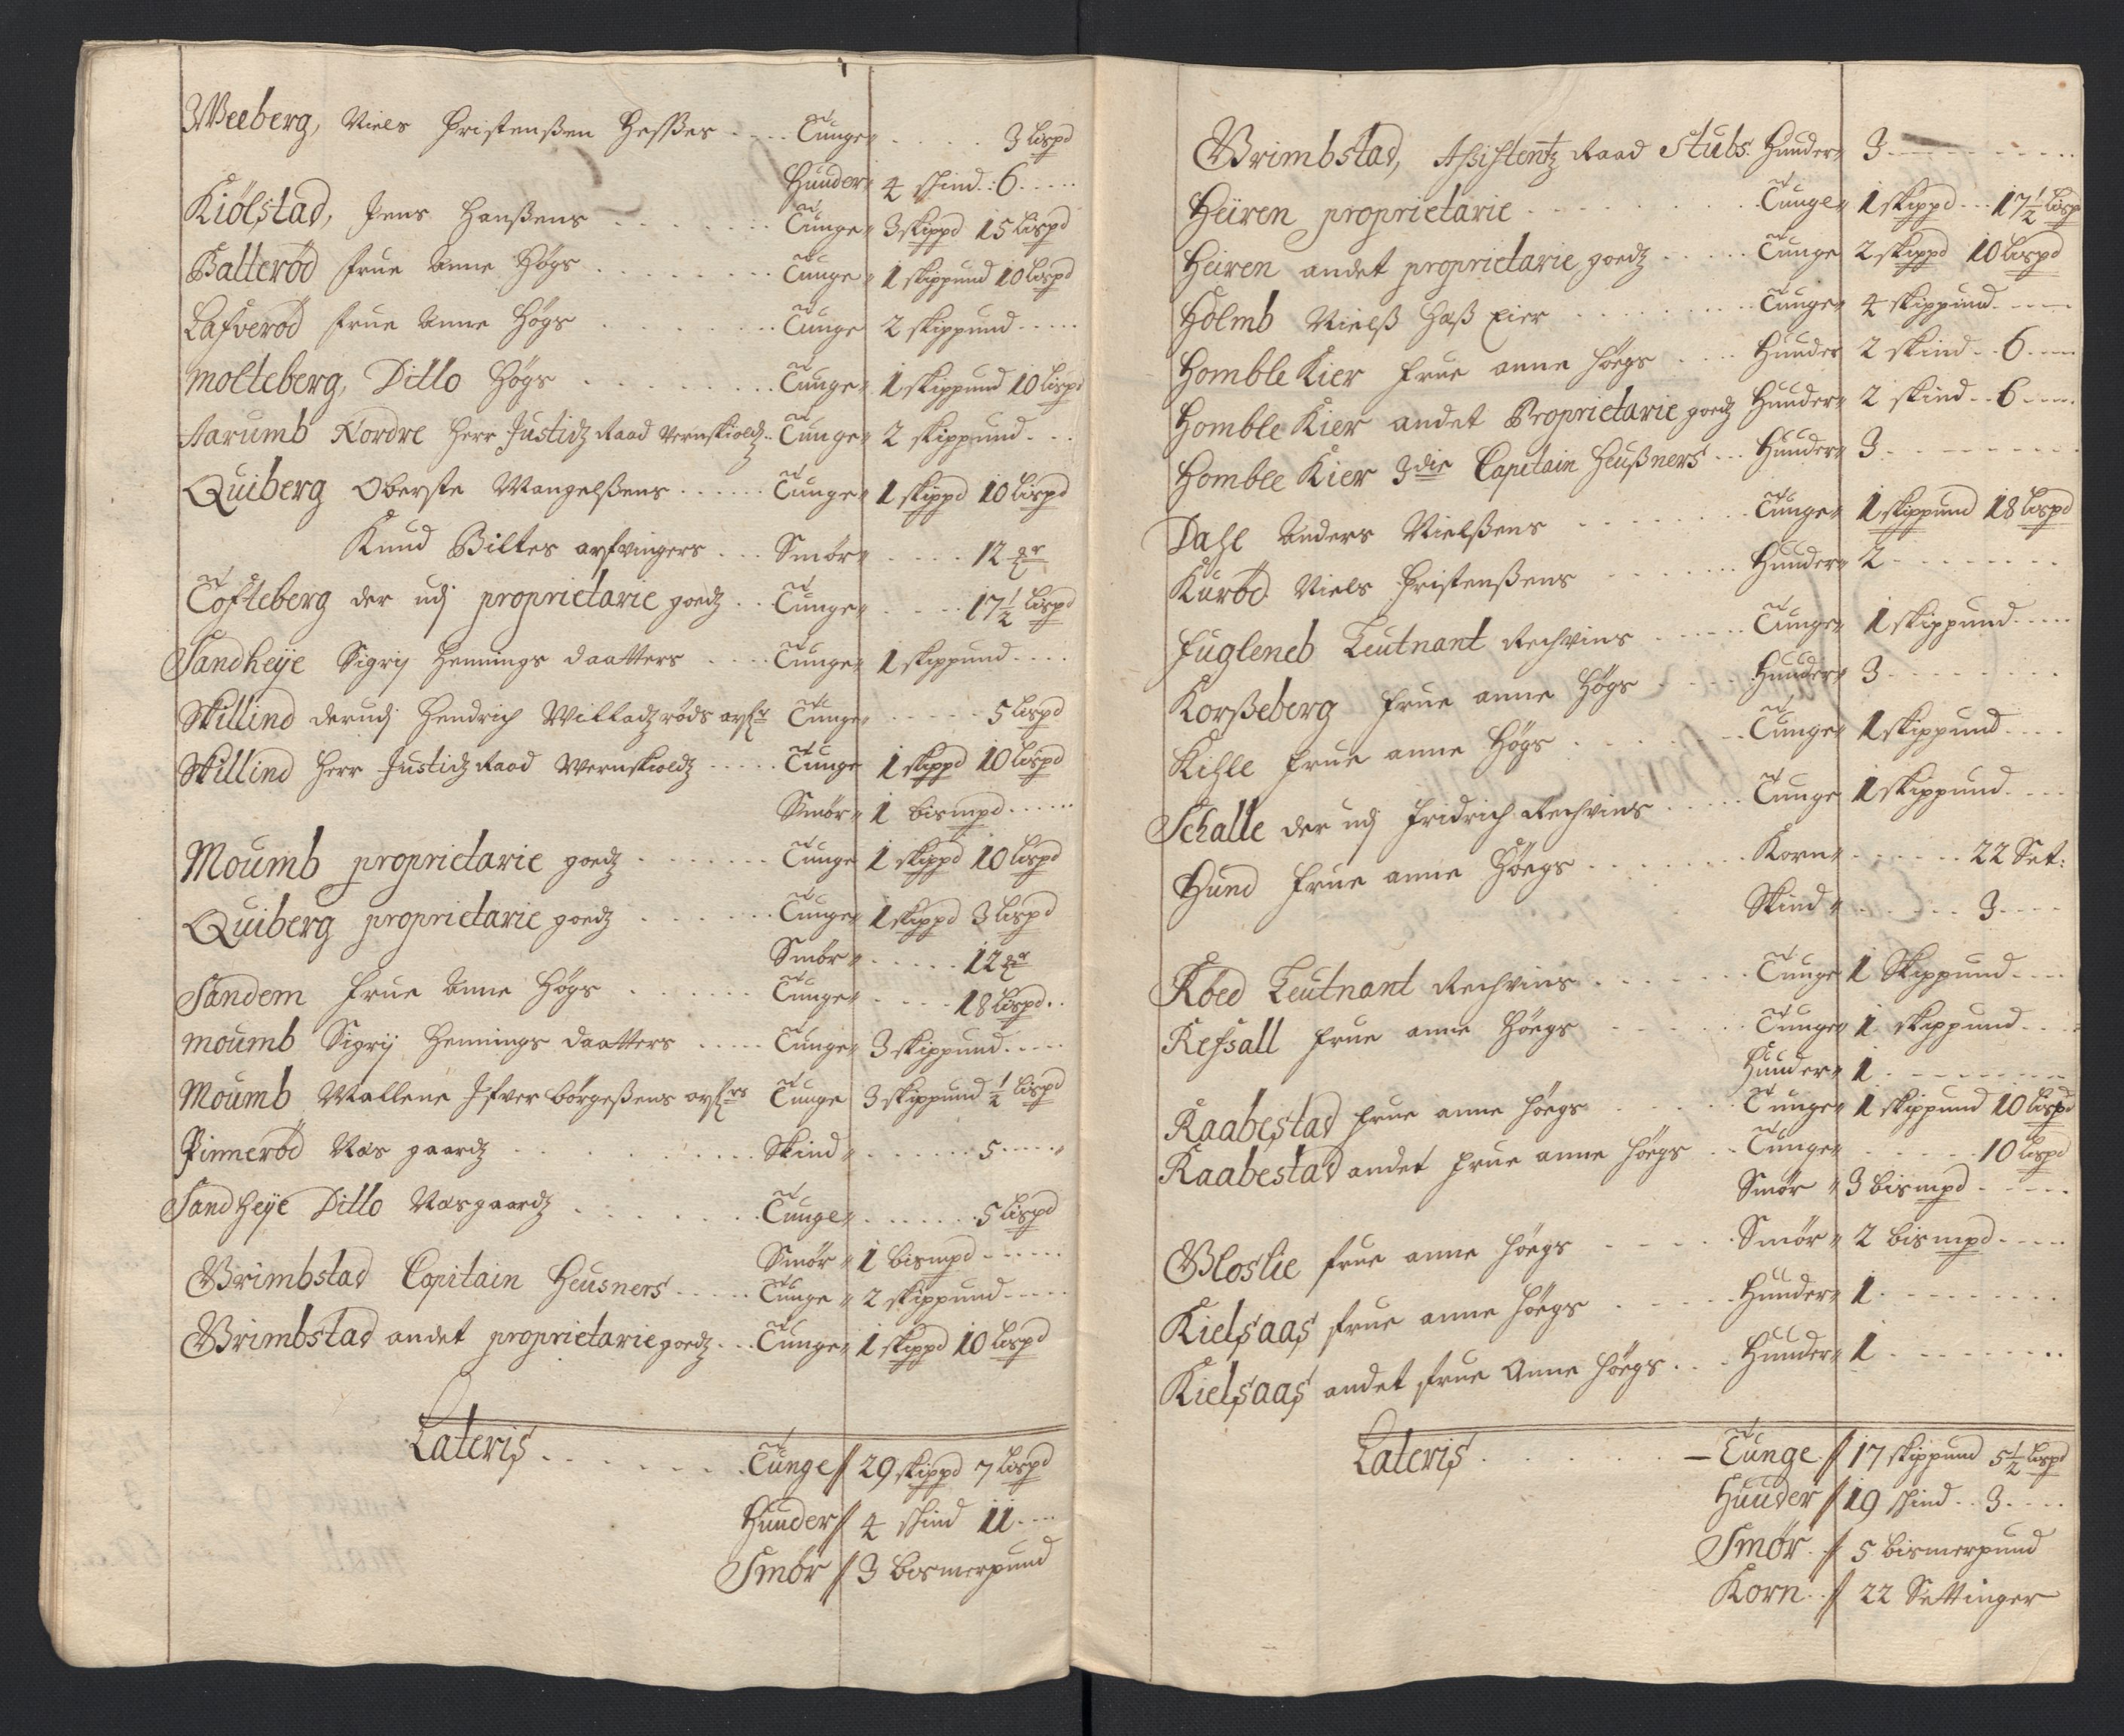 Weeberg, Niels Christenßen Hesßes .... Tunge" ..... 3 lispd
Huuder" 4 skind : 6 .....
Kiölstad, Jens Hanßens ........ Tunge" 3 skippd 15 lispd
Balterød frue Anne Høgs ........ Tunge" 1 skippund 10 lispd
Lafverød frue Anne Høgs ........ Tunge 2 skippund .....
Molteberg, Ditto Høgs ........ Tunge" 1 skippund 10 lispd
Aarumb Nordre Herr Justidz Raad Wernskioldz .. Tunge" 2 skippund ...
Quiberg Oberste Mangelßens ...... Tunge" 1 skippd 10 lispd
Knud Biltes arfvingers ... Smør" .... 12 mr
Tofteberg der udj proprietarie goedz .. Tunge" .... 17½ lispd
Sandheÿe Sigrij Hennings daatters .... Tunge" 1 skippund ....
Skillind derudj Hendrich Willadzrøds arfr Tunge" ..... 5 lispd
Skillind Herr Justidz Raad Wernskioldz ..... Tunge 1 skippd 10 lispd
Smør" 1 bismpd ......
Moumb proprietarie goedz ....... Tunge 1 skippd 10 lispd
Quiberg proprietarie goedz ...... Tunge" 1 skippd 3 lispd
Smør" ..... 12 mr
Sandem frue Anne Høgs ...... Tunge" .... 18 lispd ..
Moumb Sigrij Hennings daatters ..... Tunge" 3 skippund .....
Moumb Mallene Ifver börgeßens arfrs Tunge 3 skippund ½ lispd
Pinnerød Næs gaardz ........... Skind" ...... 5 .....
Sandheÿe Ditto Næsgaardz ....... Tunge" ...... 5 lispd
Smør" 1 bismpd ......
Grimbstad Capitain Heusners ..... Tunge" 2 skippund .....
Grimbstad andet proprietarie goedz ... Tunge" 1 skippd 10 lispd
Lateris ...... Tunge // 29 skippd 7 lispd
Huuder // 4 skind 11 ....
Smør // 3 bismerpund
Grimbstad, Assistentz Raad Stubs. Huuder" 3 .........
Heüren proprietarie ......... Tunge" 1 skippd ... 17½ lisp
Heüren andet proprietarie goedz ..... Tunge 2 skippd 10 lispd
Holmb Nielß Haß Eier ........ Tunge" 4 skippund ....
Homble Kier frue anne Høegs .... Huuder 2 skind .. 6 ....
Homble Kier andet Proprietarie goedz Huuder" 2 skind .. 6 ....
Homble Kier 3die Capitain Heußners ... Huuder" 3 ........
Dahl Anders Nielßens ........ Tunge" 1 skippund 18 lispd
Kurød Niels Christenßens ....... Huuder" 2 ........
Fugleneb Leutnant Rechvins ...... Tunge" 1 skippund .....
Korßeberg frue anne Høgs ..... Huuder" 3 ........
Kihle frue anne Høgs ....... Tunge" 1 skippund ....
Schalle der udj Fridrich Rechvins ..... Tunge 1 skippund ....
Hund frue anne Høegs ........ Korn" ...... 22 Set:
Skind" ...... 3 ....
Röed Leutnant Rechvins ....... Tunge 1 Skippund ....
Refsall frue anne Høegs ...... Tunge" 1 skippund ....
Huuder" 1 ........
Raabestad frue anne Høegs ..... Tunge" 1 skippund 10 lispd
Raabestad andet frue anne Høegs .. Tunge" ...... 10 lispd
Smør" 3 bismpd .....
Gloslie frue anne Høegs ..... Smør" 2 bismpd ....
Kielsaas frue anne Høegs ..... Huuder" 1 .........
Kielsaas andet frue Anne Høegs ... Huuder" 1 .........
Lateris ....... Tunge // 17 skippund 5½ lispd
Huuder // 19 skind .. 3 ....
Smør // 5 bismerpund
Korn // 22 Settinger